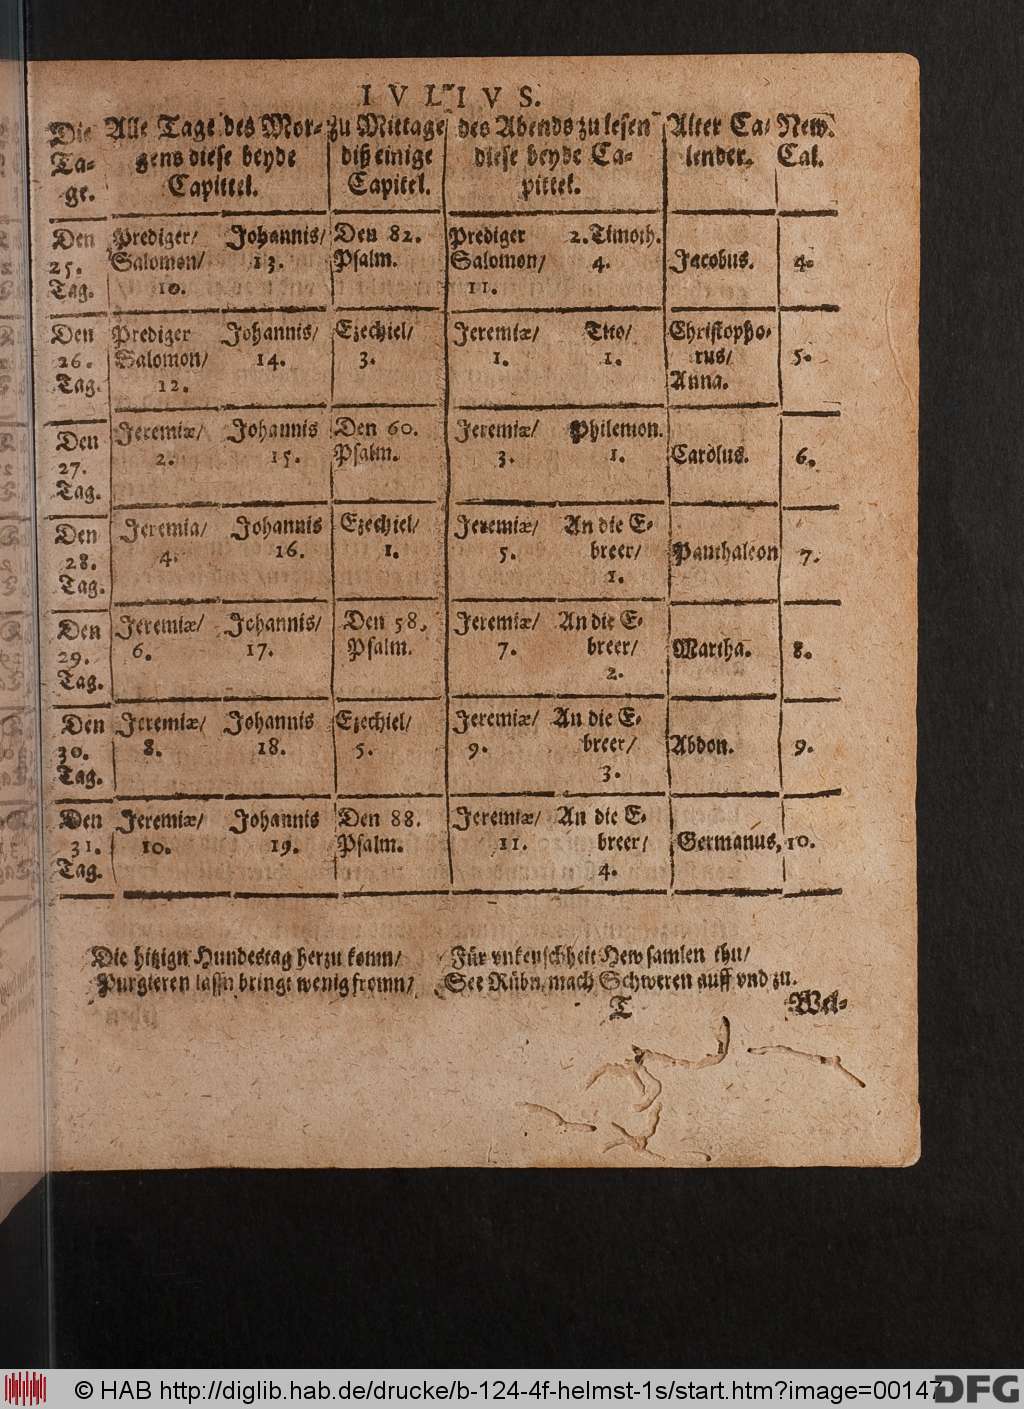 IVLIVS.
Die Alle Tage des Mor- zu Mittage des Abends zu lesen Alter Ca- New.
Ta- gens diese beyde diß einige diese beyde Ca- lender. Cal.
ge. Capittel. Capitel. pittel.
Den Prediger/ Johannis/ Den 82. Prediger 2. Timoth.
25. Salomon/ 13. Psalm. Salomon/ 4. Jacobus. 4.
Tag. 10. 11.
Den Prediger Johannis/ Ezechiel/ Jeremiæ/ Tito/ Christopho-
26. Salomon/ 14. 3. 1. 1. rus/ 5.
Tag. 12. Anna.
Den Jeremiæ/ Johannis Den 60. Jeremiæ/ Philemon.
27. 2. 15. Psalm. 3. 1. Carolus. 6.
Tag.
Den Jeremia/ Johannis Ezechiel/ Jeremiæ/ An die E-
28. 4. 16. 1. 5. breer/ Panthaleon 7.
Tag. 1.
Den Jeremiæ/ Johannis/ Den 58. Jeremiæ/ An die E-
29. 6. 17. Psalm. 7. breer/ Martha. 8.
Tag. 2.
Den Jeremiæ/ Johannis Ezechiel/ Jeremiæ/ An die E-
30. 8. 18. 5. 9. breer/ Abdon. 9.
Tag. 3.
Den Jeremiæ/ Johannis Den 88. Jeremiæ/ An die E-
31. 10. 19. Psalm. 11. breer/ Germanus, 10.
Tag. 4.
Die hitzign Hundestag herzu komn/ Für vnkeuschheit Hew samlen thu/
Purgieren lassn bringt wenig fromn/ See Rübn/ mach Schweren auff vnd zu.
T Wel-
© HAB http://diglib.hab.de/drucke/b-124-4f-helmst-1s/start.htm?image=00147
DFG